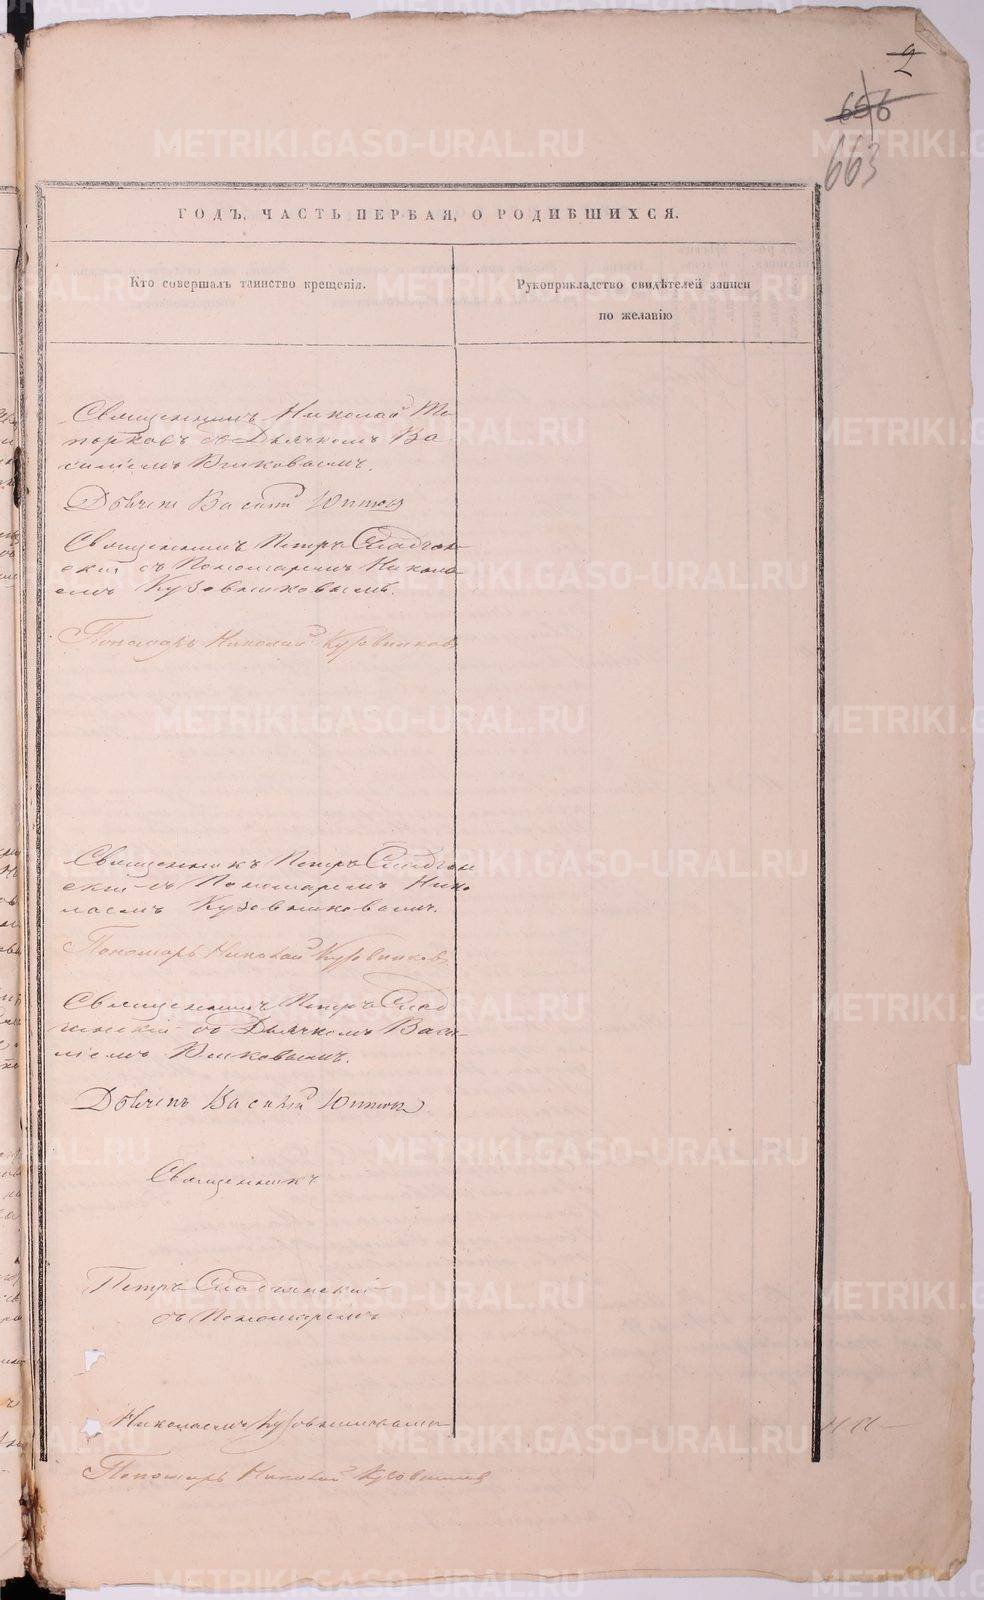 2
656
663
ГОДЪ, ЧАСТЬ ПЕРВАЯ, О РОДИВШИХСЯ.
Кто совершалъ таинство крещенія.
Рукоприкладство свидѣтелей записи
по желанію
Священникъ Николай То
порковъ съ Дьячкомъ Ва
силіемъ
Василій
Священникъ Петръ
скій съ Пономаремъ Никола
емъ Кузовниковымъ.
Пономарь Николай Кузовников
Священникъ Петръ
скій съ Пономаремъ Нико
лаемъ Кузовниковымъ.
Пономарь Николай Кузовников
Священникъ Петръ
съ Дьячкомъ Васи
ліемъ
Василій
Священникъ
Петръ
съ Пономаремъ
Николаемъ Кузовниковымъ
Пономарь Николай Кузовников
METRIKI.GASO-URAL.RU